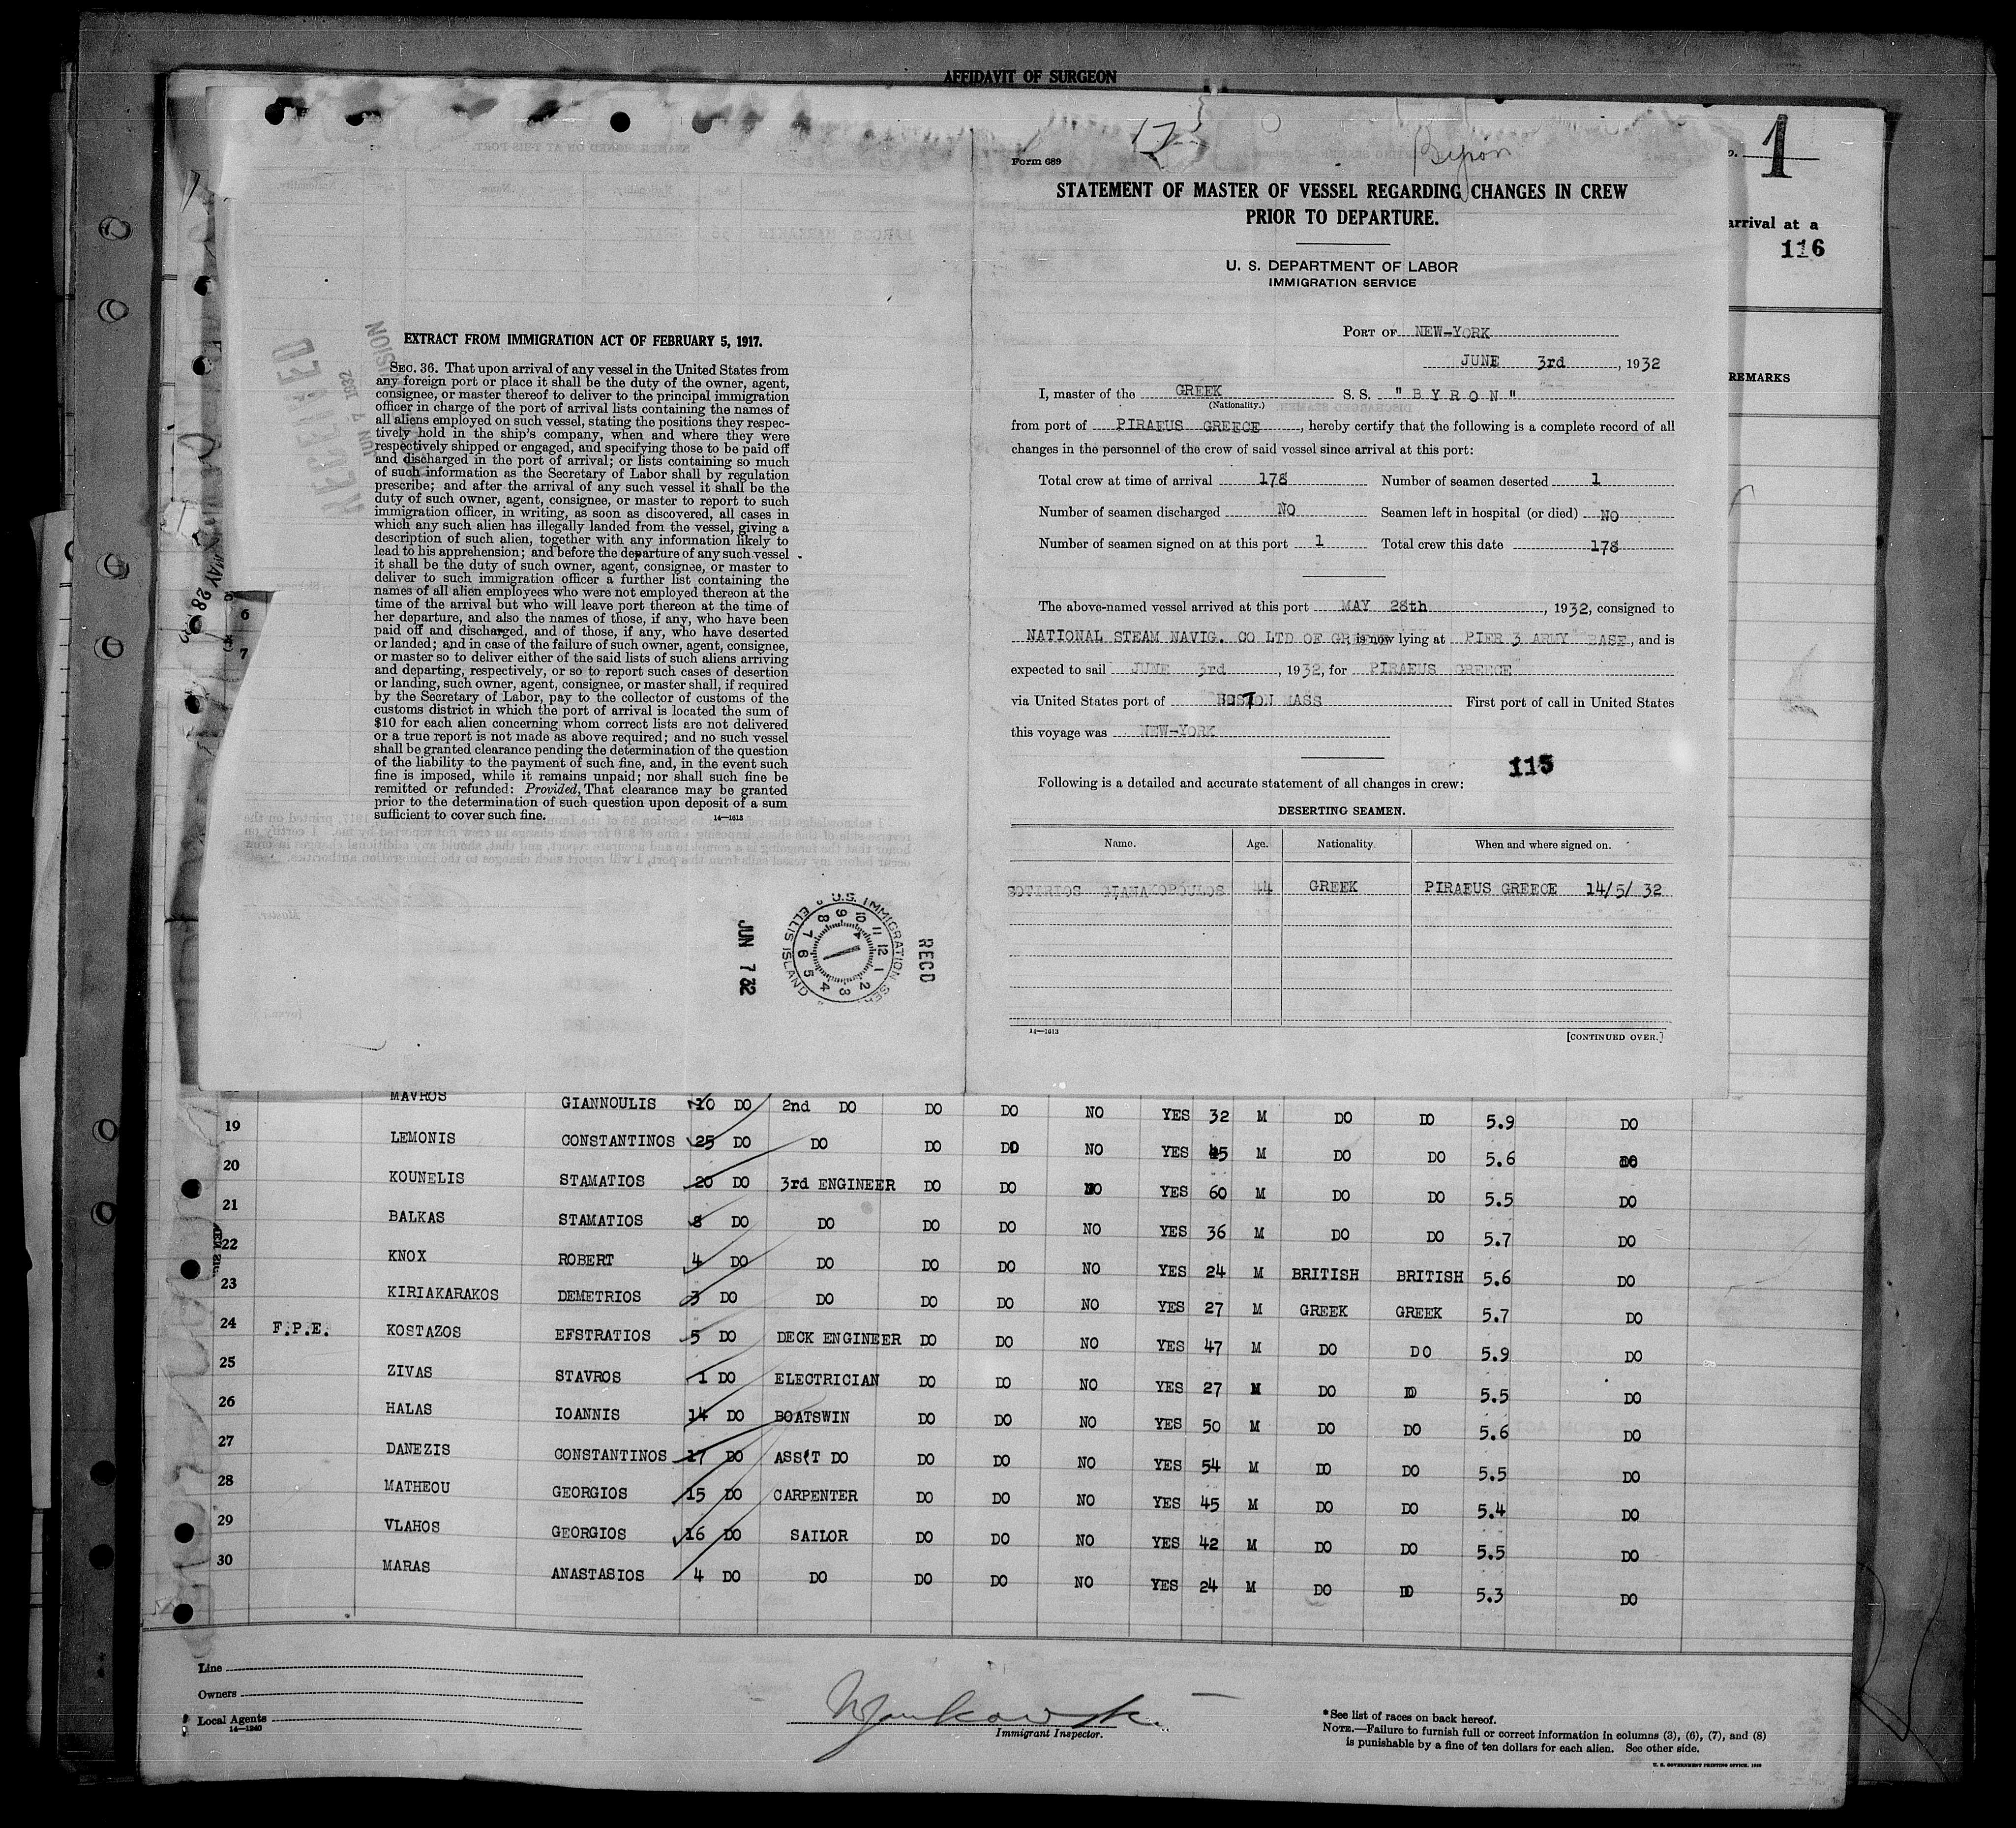 AFFIDAVIT OF SURGEON
1
arrival at a
116
REMARKS
EXTRACT FROM IMMIGRATION ACT OF FEBRUARY 5, 1917.
SEC. 36. That upon arrival of any vessel in the United States from
any foreign port or place it shall be the duty of the owner, agent,
consignee, or master thereof to deliver to the principal immigration
officer in charge of the port of arrival lists containing the names of
all aliens employed on such vessel, stating the positions they respec-
tively hold in the ship's company, when and where they were
respectively shipped or engaged, and specifying those to be paid off
and discharged in the port of arrival; or lists containing so much
of such information as the Secretary of Labor shall by regulation
prescribe; and after the arrival of any such vessel it shall be the
duty of such owner, agent, consignee, or master to report to such
immigration officer, in writing, as soon as discovered, all cases in
which any such alien has illegally landed from the vessel, giving a
description of such alien, together with any information likely to
lead to his apprehension; and before the departure of any such vessel
it shall be the duty of such owner, agent, consignee, or master to
deliver to such immigration officer a further list containing the
names of all alien employees who were not employed thereon at the
time of the arrival but who will leave port thereon at the time of
her departure, and also the names of those, if any, who have been
paid off and discharged, and of those, if any, who have deserted
or landed; and in case of the failure of such owner, agent, consignee,
or master so to deliver either of the said lists of such aliens arriving
and departing, respectively, or so to report such cases of desertion
or landing, such owner, agent, consignee, or master shall, if required
by the Secretary of Labor, pay to the collector of customs of the
customs district in which the port of arrival is located the sum of
$10 for each alien concerning whom correct lists are not delivered
or a true report is not made as above required; and no such vessel
shall be granted clearance pending the determination of the question
of the liability to the payment of such fine, and, in the event such
fine is imposed, while it remains unpaid; nor shall such fine be
remitted or refunded: Provided, That clearance may be granted
prior to the determination of such question upon deposit of a sum
sufficient to cover such fine.
14—1613
RECD
U.S. IMMIGRATION SER.
ELLIS ISLAND
JUN 7 32
Byron
Form 689
STATEMENT OF MASTER OF VESSEL REGARDING CHANGES IN CREW
PRIOR TO DEPARTURE.
U. S. DEPARTMENT OF LABOR
IMMIGRATION SERVICE
PORT OF NEW-YORK
JUNE 3rd, 1932
I, master of the GREEK S. S. "BYRON"
(Nationality.)
from port of PIRAEUS GREECE, hereby certify that the following is a complete record of all
changes in the personnel of the crew of said vessel since arrival at this port:
Total crew at time of arrival 178 Number of seamen deserted 1
Number of seamen discharged NO Seamen left in hospital (or died) NO
Number of seamen signed on at this port 1 Total crew this date 178
The above-named vessel arrived at this port MAY 28th, 1932, consigned to
NATIONAL STEAM NAVIG. CO LTD OF GR is now lying at PIER 3 ARMY BASE, and is
expected to sail JUNE 3rd, 1932, for PIRAEUS GREECE
via United States port of BOSTON MASS First port of call in United States
this voyage was NEW-YORK
115
Following is a detailed and accurate statement of all changes in crew:
DESERTING SEAMEN.
Name. Age. Nationality When and where signed on.
SOTIRIOS GIANAKOPOULOS 44 GREEK PIRAEUS GREECE 14/5/32
14—1613 [CONTINUED OVER.]
MAY 28
6
7
MAVROS GIANNOULIS 10 DO 2nd DO DO DO NO YES 32 M DO DO 5.9 DO
19 LEMONIS CONSTANTINOS 25 DO DO DO DO NO YES 45 M DO DO 5.6 DO
20 KOUNELIS STAMATIOS 20 DO 3rd ENGINEER DO DO NO YES 60 M DO DO 5.5 DO
21 BALKAS STAMATIOS 8 DO DO DO DO NO YES 36 M DO DO 5.7 DO
22 KNOX ROBERT 4 DO DO DO DO NO YES 24 M BRITISH BRITISH 5.6 DO
23 KIRIAKARAKOS DEMETRIOS 3 DO DO DO DO NO YES 27 M GREEK GREEK 5.7 DO
24 F.P.E. KOSTAZOS EFSTRATIOS 5 DO DECK ENGINEER DO DO NO YES 47 M DO DO 5.9 DO
25 ZIVAS STAVROS 1 DO ELECTRICIAN DO DO NO YES 27 M DO DO 5.5 DO
26 HALAS IOANNIS 14 DO BOATSWIN DO DO NO YES 50 M DO DO 5.6 DO
27 DANEZIS CONSTANTINOS 17 DO ASS'T DO DO DO NO YES 54 M DO DO 5.5 DO
28 MATHEOU GEORGIOS 15 DO CARPENTER DO DO NO YES 45 M DO DO 5.4 DO
29 VLAHOS GEORGIOS 16 DO SAILOR DO DO NO YES 42 M DO DO 5.5 DO
30 MARAS ANASTASIOS 4 DO DO DO DO NO YES 24 M DO DO 5.3 DO
Line
Owners
Local Agents
14—1240
Immigrant Inspector.
*See list of races on back hereof.
NOTE.—Failure to furnish full or correct information in columns (3), (6), (7), and (8)
is punishable by a fine of ten dollars for each alien. See other side.
U. S. GOVERNMENT PRINTING OFFICE.